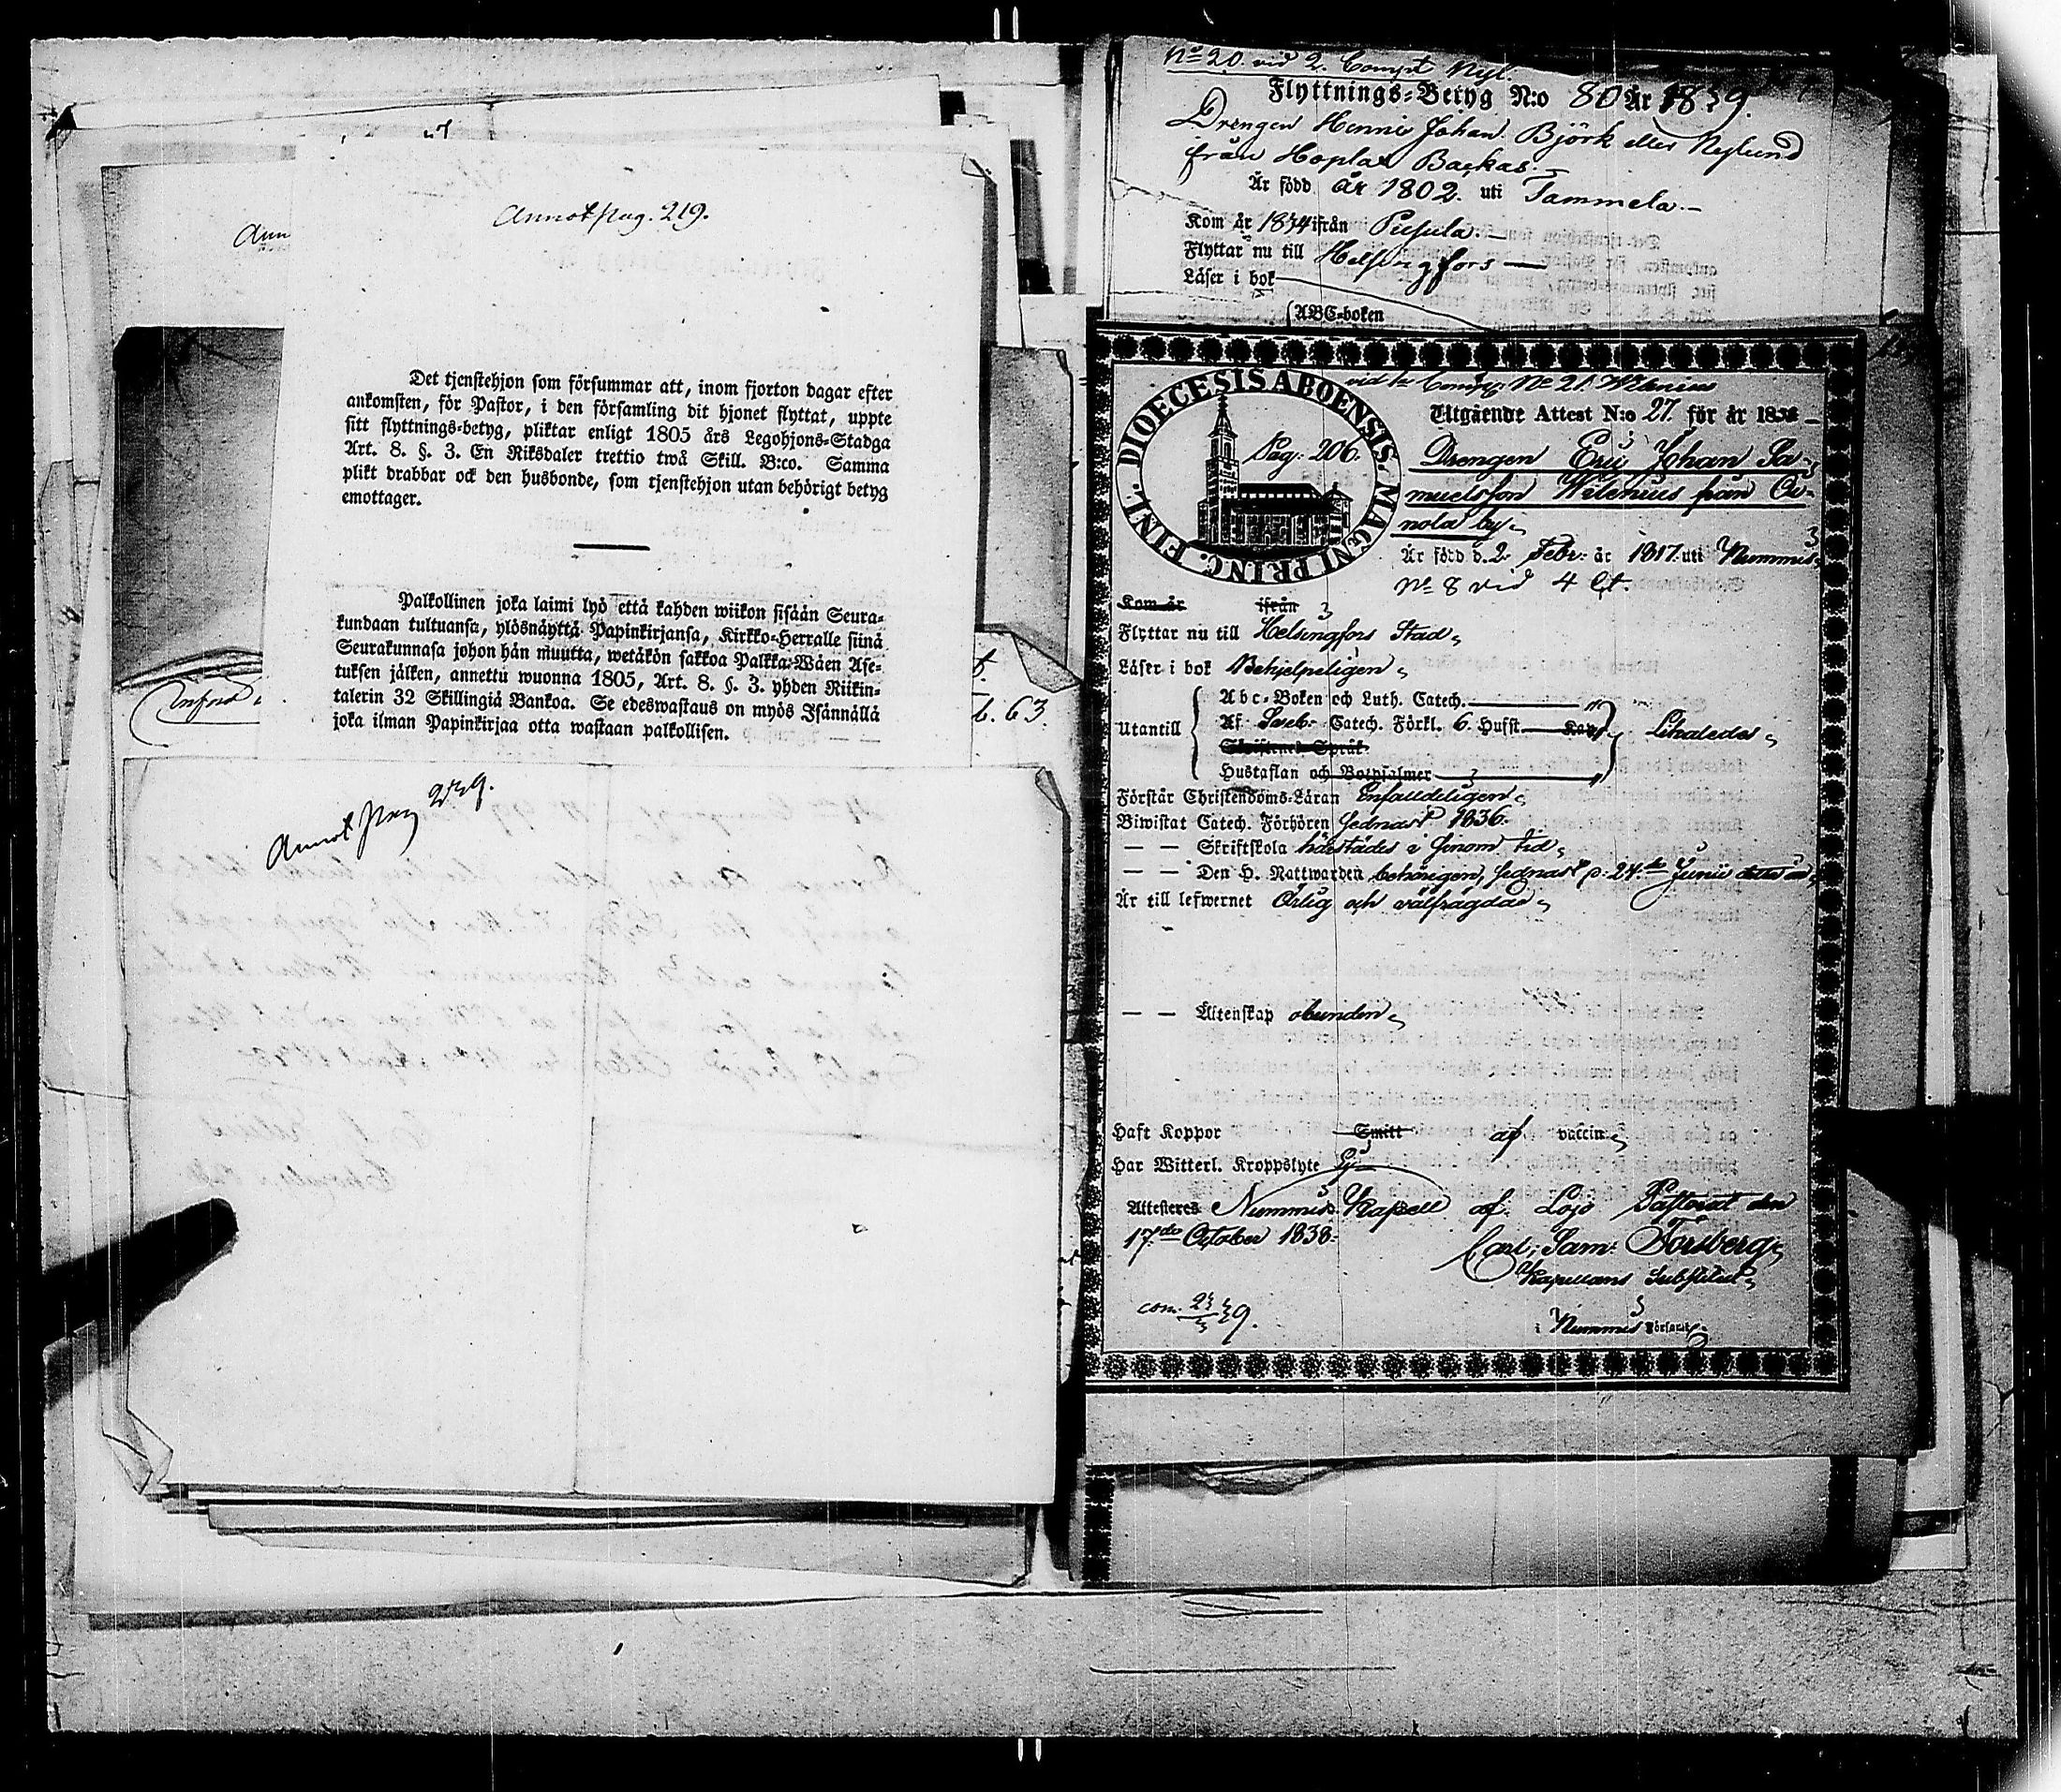 Annot pag. 219.
Det tjenstehjon som försummar att, inom fjorton dagar efter
ankomsten, för Pastor, i den församling dit hjonet flyttat, uppte
sitt flyttnings-betyg, pliktar enligt 1805 års Legohjons-Stadga
Art. 8. §. 3. En Riksdaler trettio twå Skill. B:co. Samma
plikt drabbar ock den husbonde, som tjenstehjon utan behörigt betyg
emottager.
Palkollinen joka laimi lyö että kahden wiikon sisään Seura-
kundaan tultuansa, ylösnäyttä Papinkirjansa, Kirkko-Herralle siinä
Seurakunnasa johon hän muutta, wetäkön sakkoa Palkka-Wäen Ase-
tuksen jälken, annettu wuonna 1805, Art. 8. §. 3. yhden Riikin-
talerin 32 Skillingiä Bankoa. Se edeswastaus on myös Isännällä
joka ilman Papinkirjaa otta wastaan palkollisen.
63.
Annot pag 239.
No 20. vid 2. Comp:t Nyl.
Flyttnings-Betyg N:o 80 År 1839.
Drengen Henric Johan Björk eller Nylund
från Hoplax Backas.
Är född år 1802. uti Tammela.
Kom år 1834 ifrån Pusula.
Flyttar nu till Helsingfors
Läser i bok
ABC-boken
No 21 Wilenius
DIOECESIS ABOENSIS. MAGNI PRINC. FINL.
Pag. 206.
Utgående Attest N:o 27. för år 1838
Drengen Eric Johan Sa-
muelsson Wilenius från Oi-
nola by
Är född d. 2. Febr. år 1817. uti Nummis
No 8 vid 4 Ct.
Kom år ifrån
Flyttar nu till Helsingfors Stad
Läser i bok Behjelpeligen
Utantill
Abc-Boken och Luth. Catech.
Af Sveb. Catech. Förkl. 6. Hufst. Kap.
Skriftenes Språk.
Hustaflan och Botpsalmer
Likaledes
Förstår Christendoms-Läran Enfalldeligen
Biwistat Catech. Förhören sednast 1836.
— — Skriftskola härstädes i sinom tid
— — Den H. Nattwarden behörigen, sednast d. 24:de Junii detta år
Är till lefwernet Ärlig och välfrägdad
— — Äktenskap obunden
Haft Koppor Smitt af vaccin
Har Witterl. Kroppslyte Ej
Attesteras Nummis Kapell af Lojo Pastorat den
17:de October 1838.
Carl Sam. Forsberg
Kapellans Substitut
i Nummis Församl.
com. 23/3 39.